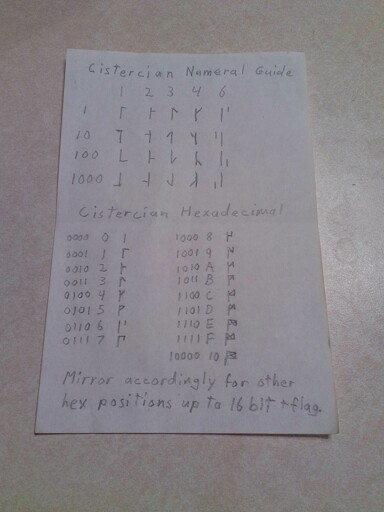 Cistercian Numeral Guide
1 2 3 4 6
1
10
100
1000
Cistercian Hexadecimal
0000 0
0001 1
0010 2
0011 3
0100 4
0101 5
0110 6
0111 7
1000 8
1001 9
1010 A
1011 B
1100 C
1101 D
1110 E
1111 F
10000 10
Mirror accordingly for other
hex positions up to 16 bit + flag.